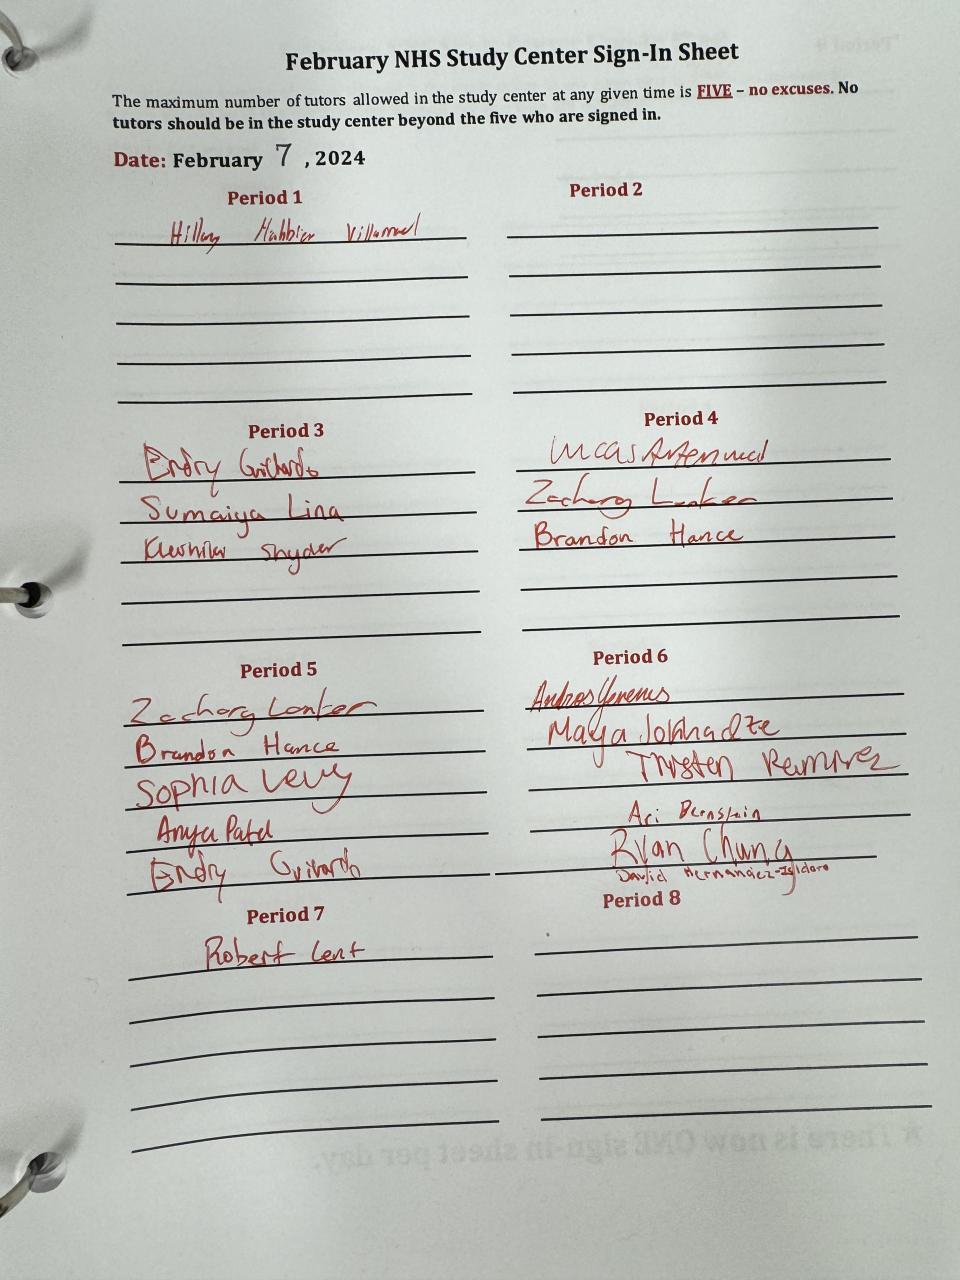 February NHS Study Center Sign-In Sheet
The maximum number of tutors allowed in the study center at any given time is FIVE – no excuses. No
tutors should be in the study center beyond the five who are signed in.
Date: February 7, 2024
Period 1
Hillary Villamuel
Period 2
Period 3
Endry
Sumaiya Lina
Snyder
Period 4
Zachary Lonker
Brandon Hance
Period 5
Zachary Lonker
Brandon Hance
Sophia Levy
Anya Patel
Endry
Period 6
Maya Jokhadze
Ramirez
Ari Bernstein
Ryan Chung
David Hernandez-Isidoro
Period 7
Robert Lent
Period 8
★ There is now ONE sign-in sheet per day.